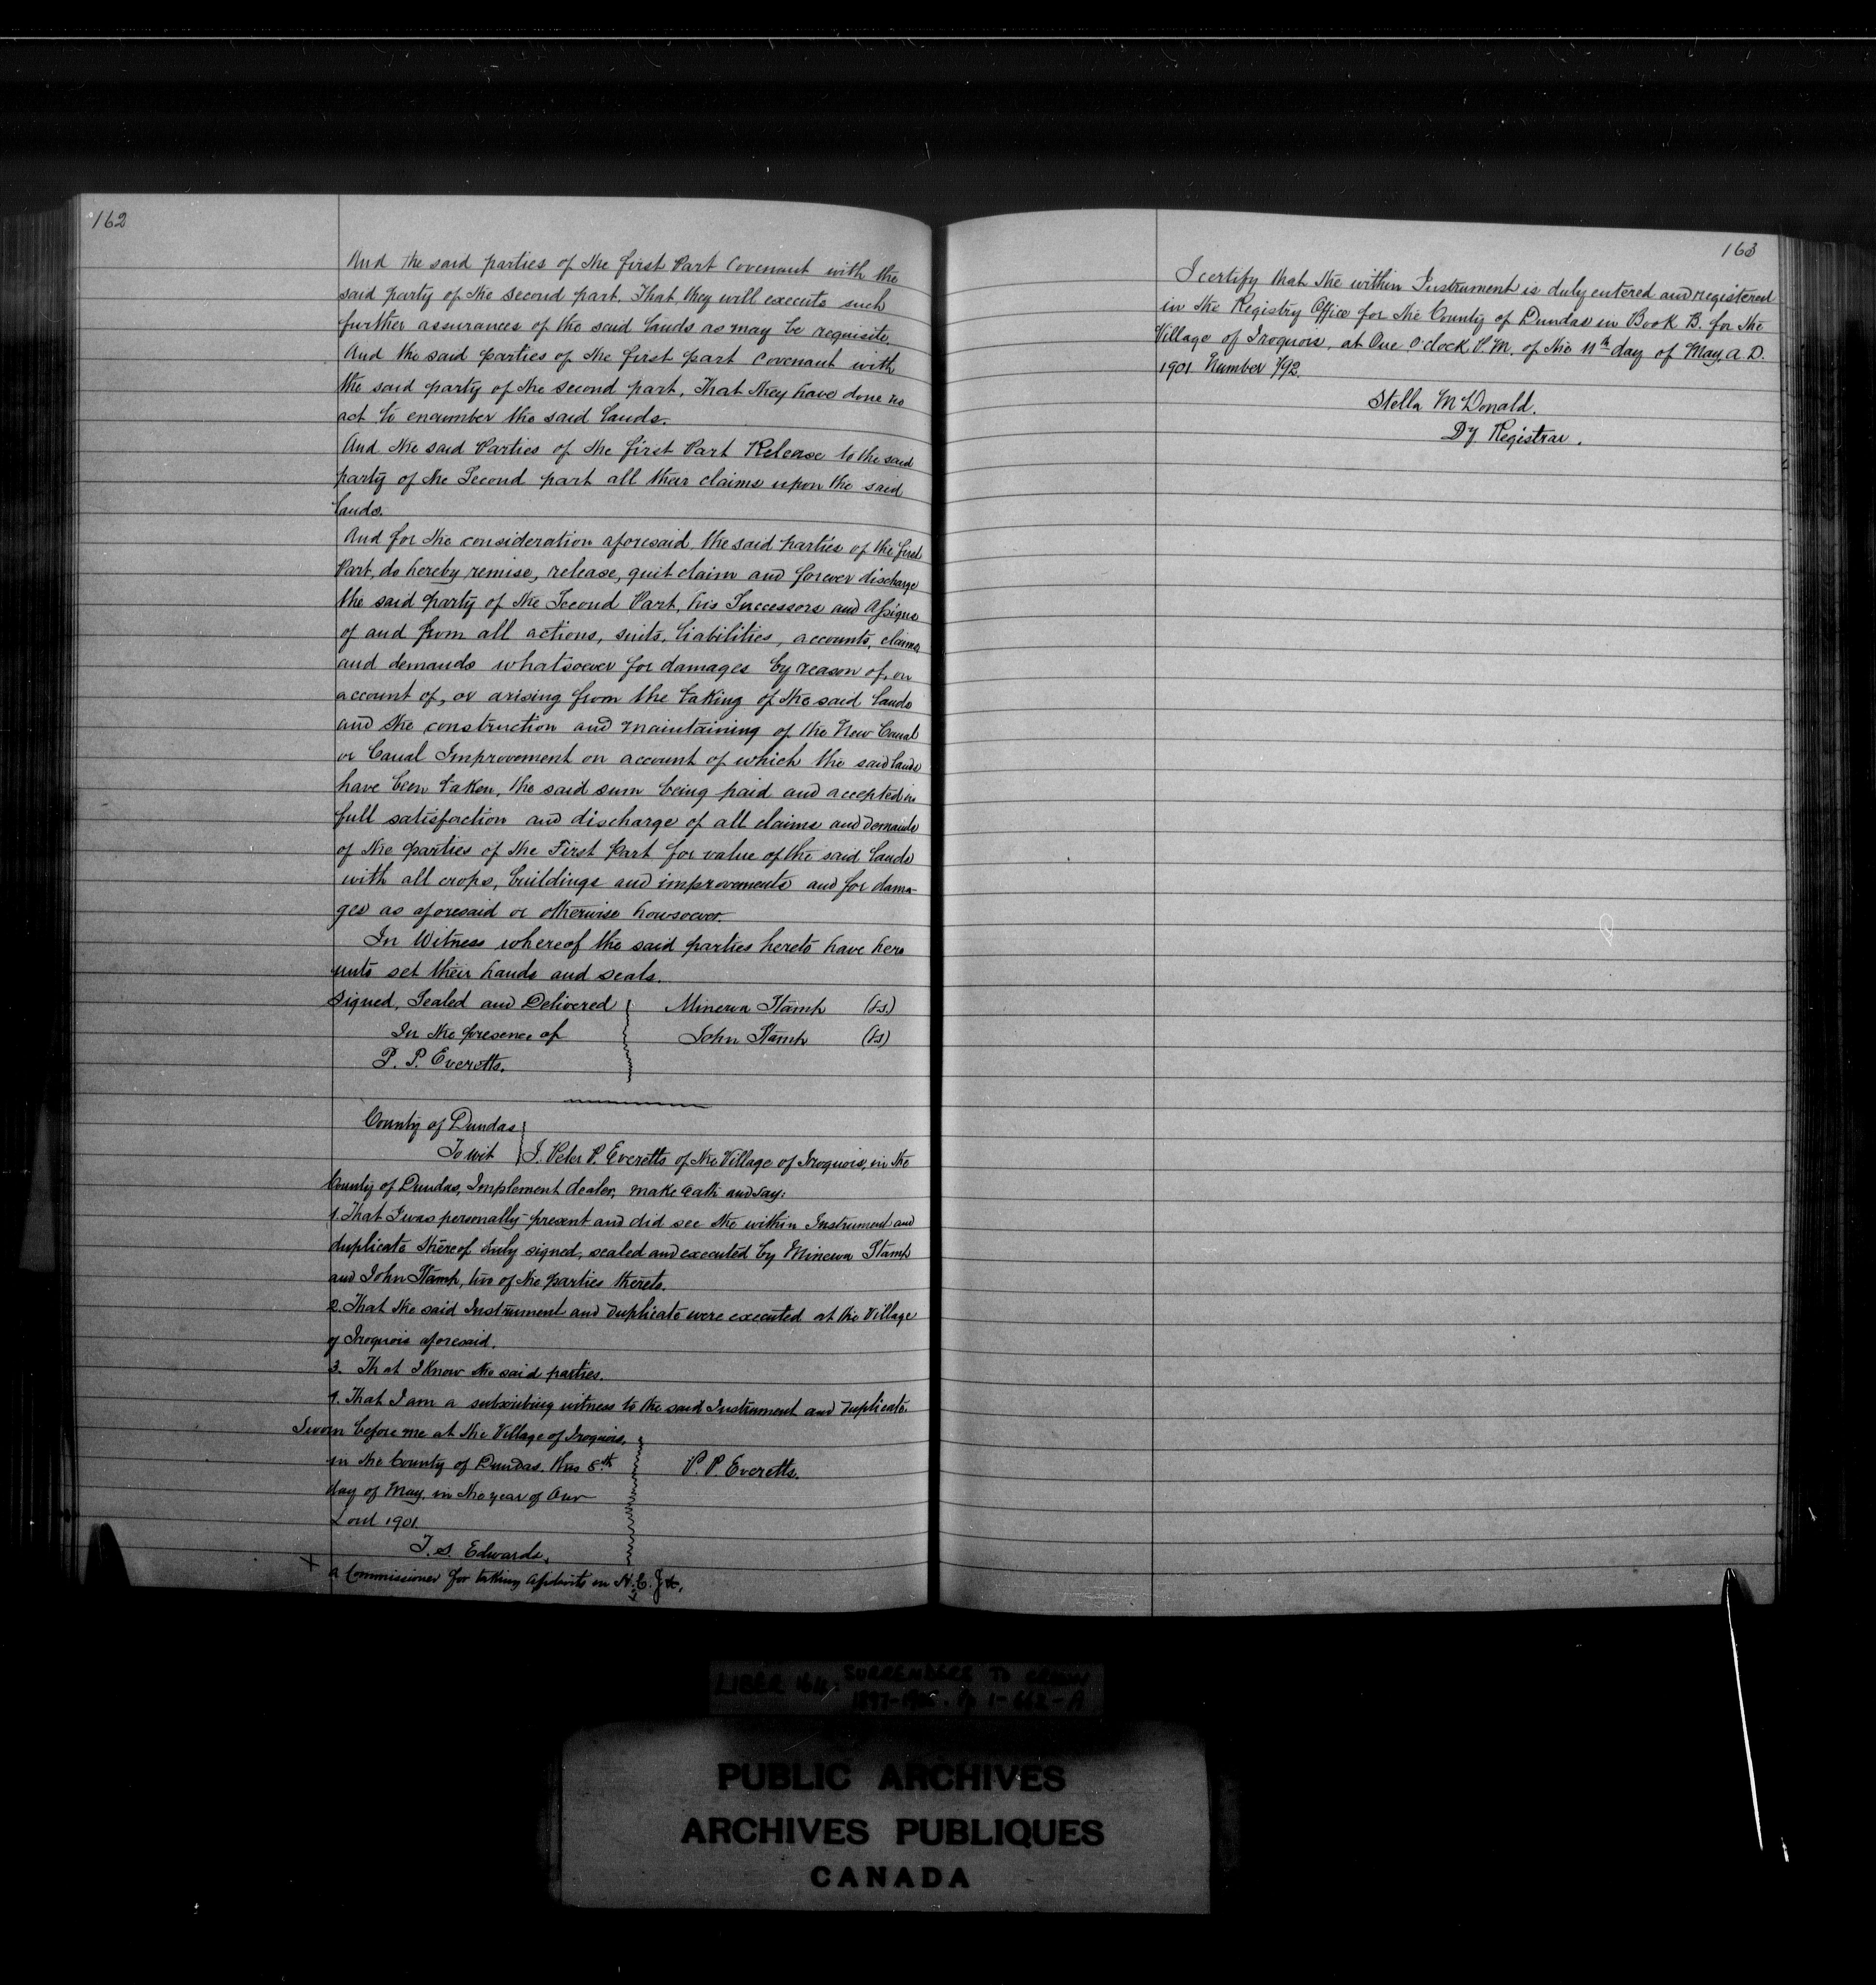 162
And the said parties of the first Part Covenant with the
said party of the second part. That they will execute such
further assurances of the said lands as may be requisite.
And the said parties of the first part Covenant with
the said party of the second part, That they have done no
act to encumber the said lands.
And the said Parties of the first Part Release to the said
party of the Second part all their claims upon the said
lands.
And for the consideration aforesaid, the said parties of the first
Part, do hereby remise, release, quit claim and forever discharge
the said party of the Second Part, his Successors and Assigns
of and from all actions, suits, liabilities, accounts, claims
and demands whatsoever for damages by reason of, on
account of, or arising from the taking of the said lands
and the construction and maintaining of the New Canal
or Canal Improvement on account of which the said lands
have been taken, the said sum being paid and accepted in
full satisfaction and discharge of all claims and demands
of the parties of the First Part for value of the said lands
with all crops, buildings and improvements and for dama-
ges as aforesaid or otherwise howsoever.
In Witness whereof the said parties hereto have here
unto set their hands and seals.
Signed, Sealed and Delivered Minerva Stamp (LS.)
In the presence of John Stamp (LS)
P. P. Everetts.
County of Dundas
To wit I. Peter P. Everetts of the Village of Iroquois, in the
County of Dundas, Implement dealer, make Oath and say:
1. That I was personally present and did see the within Instrument and
duplicate thereof duly signed, sealed and executed by Minerva Stamp
and John Stamp, two of the parties thereto.
2. That the said Instrument and Duplicate were executed at the Village
of Iroquois aforesaid.
3. That I know the said parties.
4. That I am a subscribing witness to the said Instrument and Duplicate.
Sworn before me at the Village of Iroquois,
in the County of Dundas. this 8th P. P. Everetts.
day of May, in the year of Our
Lord 1901.
J. S. Edwards,
X a Commissioner for taking Affidavits in H. C. J. &c,
163
I certify that the within Instrument is duly entered and registered
in the Registry Office for the County of Dundas in Book B. for the
Village of Iroquois, at One O'clock P.M. of the 11th day of May, A.D.
1901 Number
Stella McDonald.
Dy Registrar.
LIBER 164. SURRENDERS TO CROWN
PUBLIC ARCHIVES
ARCHIVES PUBLIQUES
CANADA